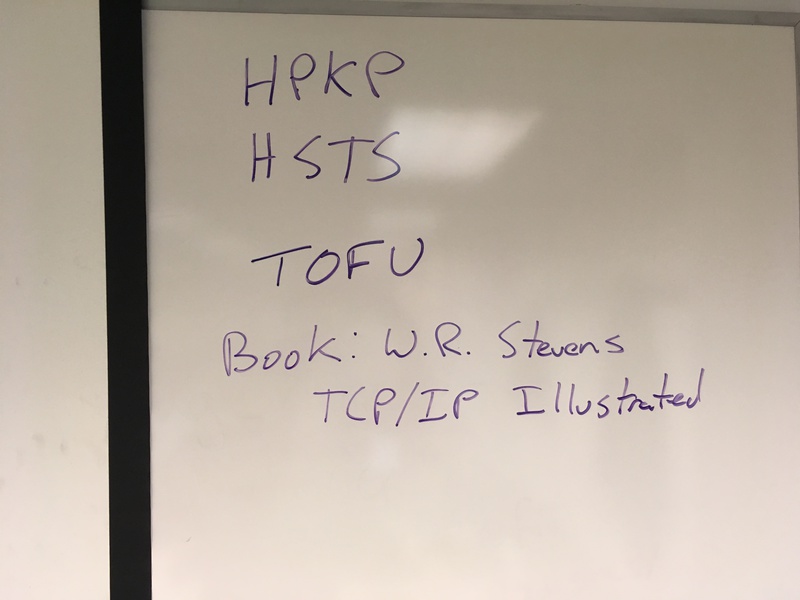 HPKP
HSTS
TOFU
Book: W.R. Stevens
TCP/IP Illustrated